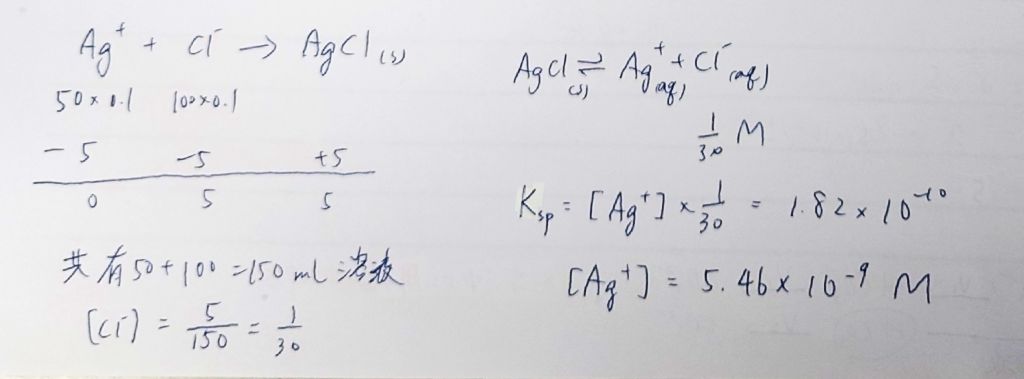 Ag⁺ + Cl⁻ → AgCl(s)
50×0.1 100×0.1
-5 -5 +5
0 5 5
共有50+100=150ml溶液
[Cl⁻] = 5/150 = 1/30
AgCl(s) ⇌ Ag⁺(aq) + Cl⁻(aq)
1/30 M
Ksp = [Ag⁺] × 1/30 = 1.82 × 10⁻¹⁰
[Ag⁺] = 5.46 × 10⁻⁹ M